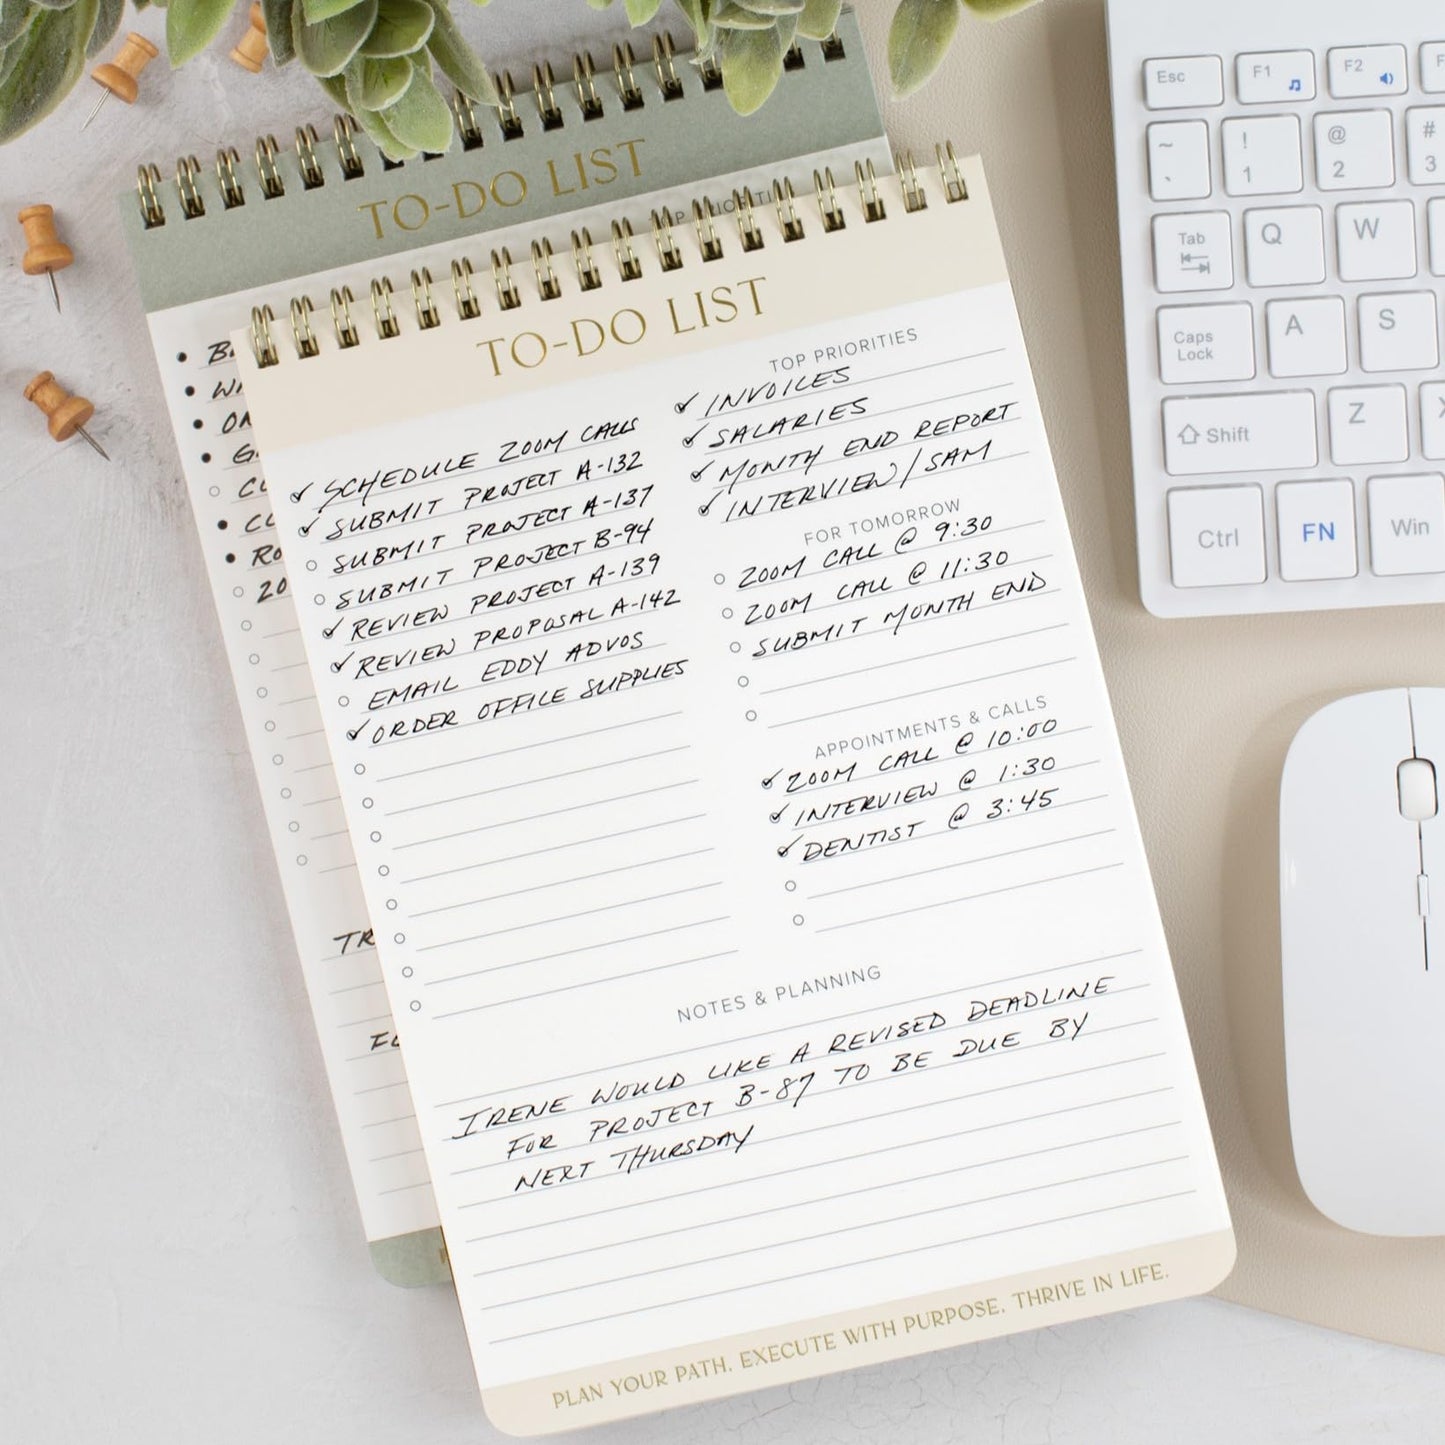 TO-DO LIST
TO-DO LIST
TOP PRIORITIES
INVOICES
SALARIES
MONTH END REPORT
INTERVIEW/SAM
SCHEDULE ZOOM CALLS
SUBMIT PROJECT A-132
SUBMIT PROJECT A-137
SUBMIT PROJECT B-94
REVIEW PROJECT A-139
REVIEW PROPOSAL A-142
EMAIL EDDY ADVOS
ORDER OFFICE SUPPLIES
FOR TOMORROW
ZOOM CALL @ 9:30
ZOOM CALL @ 11:30
SUBMIT MONTH END
APPOINTMENTS & CALLS
ZOOM CALL @ 10:00
INTERVIEW @ 1:30
DENTIST @ 3:45
NOTES & PLANNING
IRENE WOULD LIKE A REVISED DEADLINE
FOR PROJECT B-87 TO BE DUE BY
NEXT THURSDAY
PLAN YOUR PATH. EXECUTE WITH PURPOSE. THRIVE IN LIFE.
Esc F1 F2
~ ! @ #
` 1 2 3
Tab Q W
Caps Lock A S
Shift Z
Ctrl FN Win